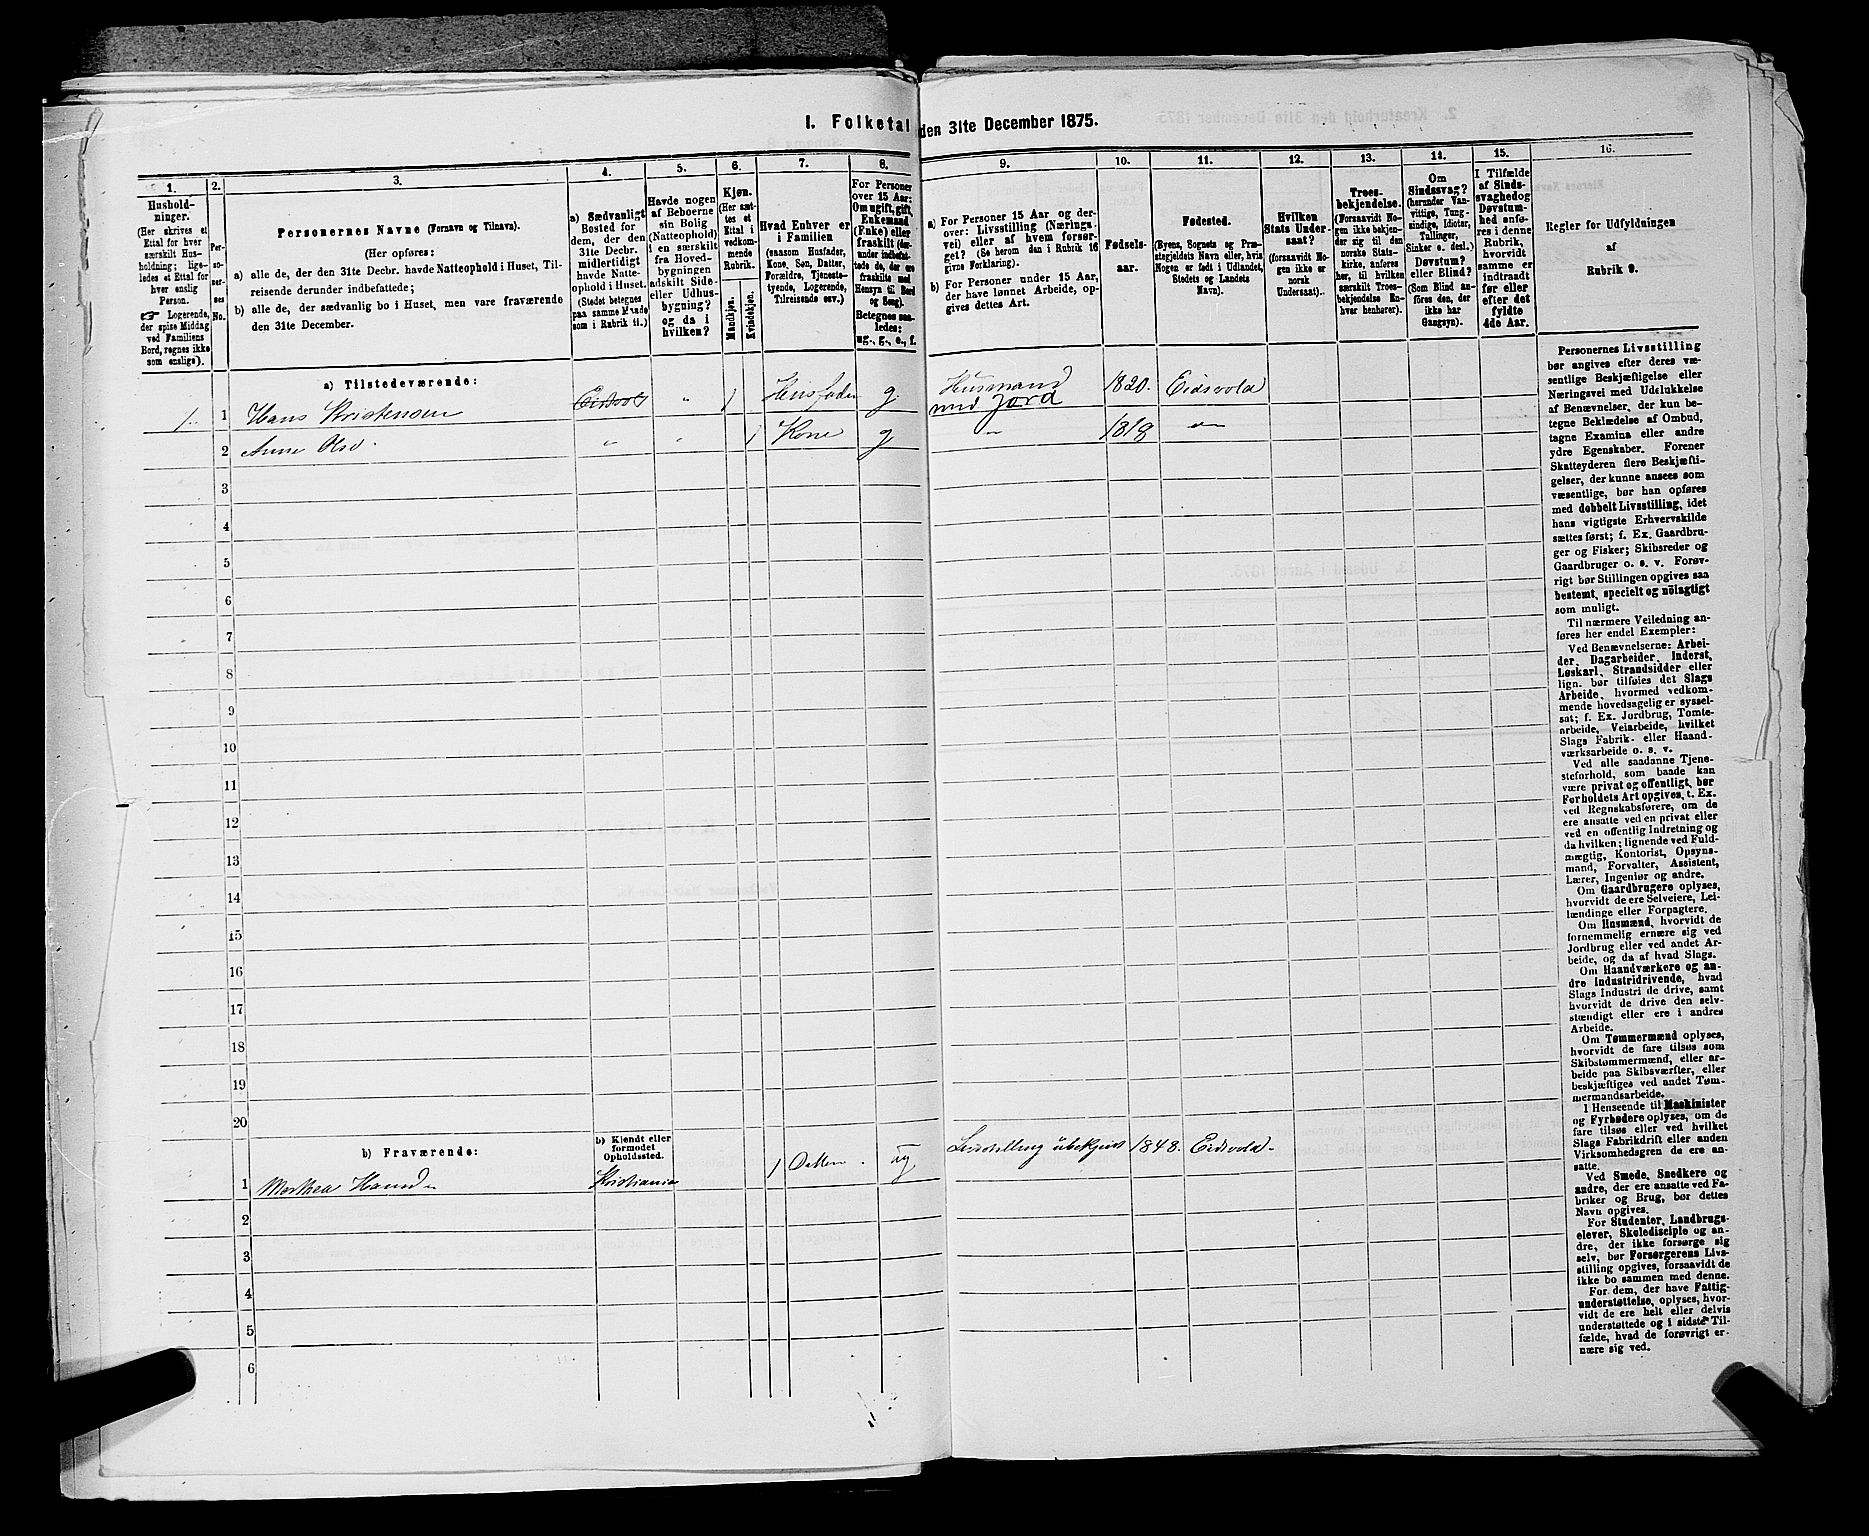 I. Folketal den 31te December 1875.
1. 2. 3. 4. 5. 6. 7. 8. 9. 10. 11. 12. 13. 14. 15. 16.
Hushold-
ninger.
(Her skrives et
Ettal for hver
særskilt Hus-
holdning; lige-
ledes et Ettal for
hver enslig
Person.
☞ Logerende,
der spise Middag
ved Familiens
Bord, regnes ikke
som enslige).
Per-
so-
ner-
nes
No.
Personernes Navne (Fornavn og Tilnavn).
(Her opføres:
a) alle de, der den 31te Decbr. havde Natteophold i Huset, Til-
reisende derunder indbefattede;
b) alle de, der sædvanlig bo i Huset, men vare fraværende
den 31te December.
a) Sædvanligt
Bosted for
dem, der den
31te Decbr.
midlertidigt
havde Natte-
ophold i Huset.
(Stedet betegnes
paa samme Maade
som i Rubrik 11.)
Havde nogen
af Beboerne
sin Bolig
(Natteophold)
i en særskilt
fra Hoved-
bygningen
adskilt Side-
eller Udhus-
bygning?
og da i
hvilken?
Kjøn.
(Her sæt-
tes et
Ettal i
vedkom-
mende
Rubrik.
Mandkjøn.
Kvindekjøn.
Hvad Enhver er
i Familien
(saasom Husfader,
Kone, Søn, Datter,
Forældre, Tjeneste-
tyende, Logerende,
Tilreisende osv.)
For Personer
over 15 Aar:
Om ugift, gift,
Enkemand
(Enke) eller
fraskilt (der-
under indbefat-
tede de, der ere
fraskilte med
Hensyn til Bord
og Seng).
Betegnes saa-
ledes:
ug., g., e., f.
a) For Personer 15 Aar og der-
over: Livsstilling (Nærings-
vei) eller af hvem forsør-
get? (Se herom den i Rubrik 16
givne Forklaring).
b) For Personer under 15 Aar,
der have lønnet Arbeide, op-
gives dettes Art.
Fødsels-
aar.
Fødested.
(Byens, Sognets og Præ-
stegjeldets Navn eller, hvis
Nogen er født i Udlandet,
Stedets og Landets
Navn).
Hvilken
Stats Under-
saat?
(forsaavidt No-
gen ikke er
norsk
Undersaat).
Troes-
bekjendelse.
(Forsaavidt No-
gen ikke bekjen-
der sig til den
norske Stats-
kirke, anføres
her, til hvilken
særskilt Troes-
bekjendelse En-
hver henhører).
Om
Sindssvag?
(herunder Van-
vittige, Tung-
sindige, Idioter,
Tullinger,
Sinker o. desl.)
Døvstum?
eller Blind?
(Som Blind an-
føres den, der
ikke har
Gangsyn).
I Tilfælde
af Sinds-
svaghed og
Døvstum-
hed anfø-
res i denne
Rubrik,
hvorvidt
samme er
indtraadt
før eller
efter det
fyldte
4de Aar.
Regler for Udfyldningen
af
Rubrik 9.
a) Tilstedeværende:
1. 1 Hans Kristensen Eidsvold " 1 Husfader g. Husmand med Jord 1820. Eidsvold
2 Anne Olsd. " " 1 Kone g " 1818 "
3
4
5
6
7
8
9
10
11
12
13
14
15
16
17
18
19
20
b) Fraværende:
b) Kjendt eller
formodet
Opholdssted.
1 Marthea Hansd. Kristiania 1 Datter. ug Livsstilling ubekjendt 1848. Eidsvold.
2
3
4
5
6
Personernes Livsstilling
bør angives efter deres væ-
sentlige Beskjæftigelse eller
Næringsvei med Udelukkelse
af Benævnelser, der kun be-
tegne Beklædelse af Ombud,
tagne Examina eller andre
ydre Egenskaber. Forener
Skatteyderen flere Beskjæfti-
gelser, der kunne ansees som
væsentlige, bør han opføres
med dobbelt Livsstilling, idet
hans vigtigste Erhvervskilde
sættes først; f. Ex. Gaardbru-
ger og Fisker; Skibsreder og
Gaardbruger o. s. v. Forøv-
rigt bør Stillingen opgives saa
bestemt, specielt og nøiagtigt
som muligt.
Til nærmere Veiledning an-
føres her endel Exempler:
Ved Benævnelserne: Arbei-
der, Dagarbeider, Inderst,
Løskarl, Strandsidder eller
lign. bør tilføies det Slags
Arbeide, hvormed vedkom-
mende hovedsagelig er syssel-
sat; f. Ex. Jordbrug, Tomte-
arbeide, Veiarbeide, hvilket
Slags Fabrik- eller Haand-
værksarbeide o. s. v.
Ved alle saadanne Tjene-
steforhold, som baade kan
være privat og offentligt, bør
Forholdets Art opgives, t. Ex.
ved Regnskabsførere, om de
ere ansatte ved en privat eller
ved en offentlig Indretning og
da hvilken; lignende ved Fuld-
mægtig, Kontorist, Opsyns-
mand, Forvalter, Assistent,
Lærer, Ingeniør og andre.
Om Gaardbrugere oplyses,
hvorvidt de ere Selveiere, Lei-
lændinge eller Forpagtere.
Om Husmænd, hvorvidt de
fornemmelig ernære sig ved
Jordbrug eller ved andet Ar-
beide, og da af hvad Slags.
Om Haandværkere og an-
dre Industridrivende, hvad
Slags Industri de drive, samt
hvorvidt de drive den selv-
stændigt eller ere i andres
Arbeide.
Om Tømmermænd oplyses,
hvorvidt de fare tilsøs som
Skibstømmermænd, eller ar-
beide paa Skibsværfter, eller
beskjæftiges ved andet Tøm-
mermandsarbeide.
I Henseende til Maskinister
og Fyrbødere oplyses, om de
fare tilsøs eller ved hvilket
Slags Fabrikdrift eller anden
Virksomhedsgren de ere an-
satte.
Ved Smede, Snedkere og
andre, der ere ansatte ved Fa-
briker og Brug, bør dettes
Navn opgives.
For Studenter, Landbrugs-
elever, Skoledisciple og an-
dre, der ikke forsørge sig
selv, bør Forsørgerens Livs-
stilling opgives, forsaavidt de
ikke bo sammen med denne.
For dem, der have Fattig-
understøttelse, oplyses, hvor-
vidt de ere helt eller delvis
understøttede og i sidste Til-
fælde, hvad de forøvrigt er-
nære sig ved.